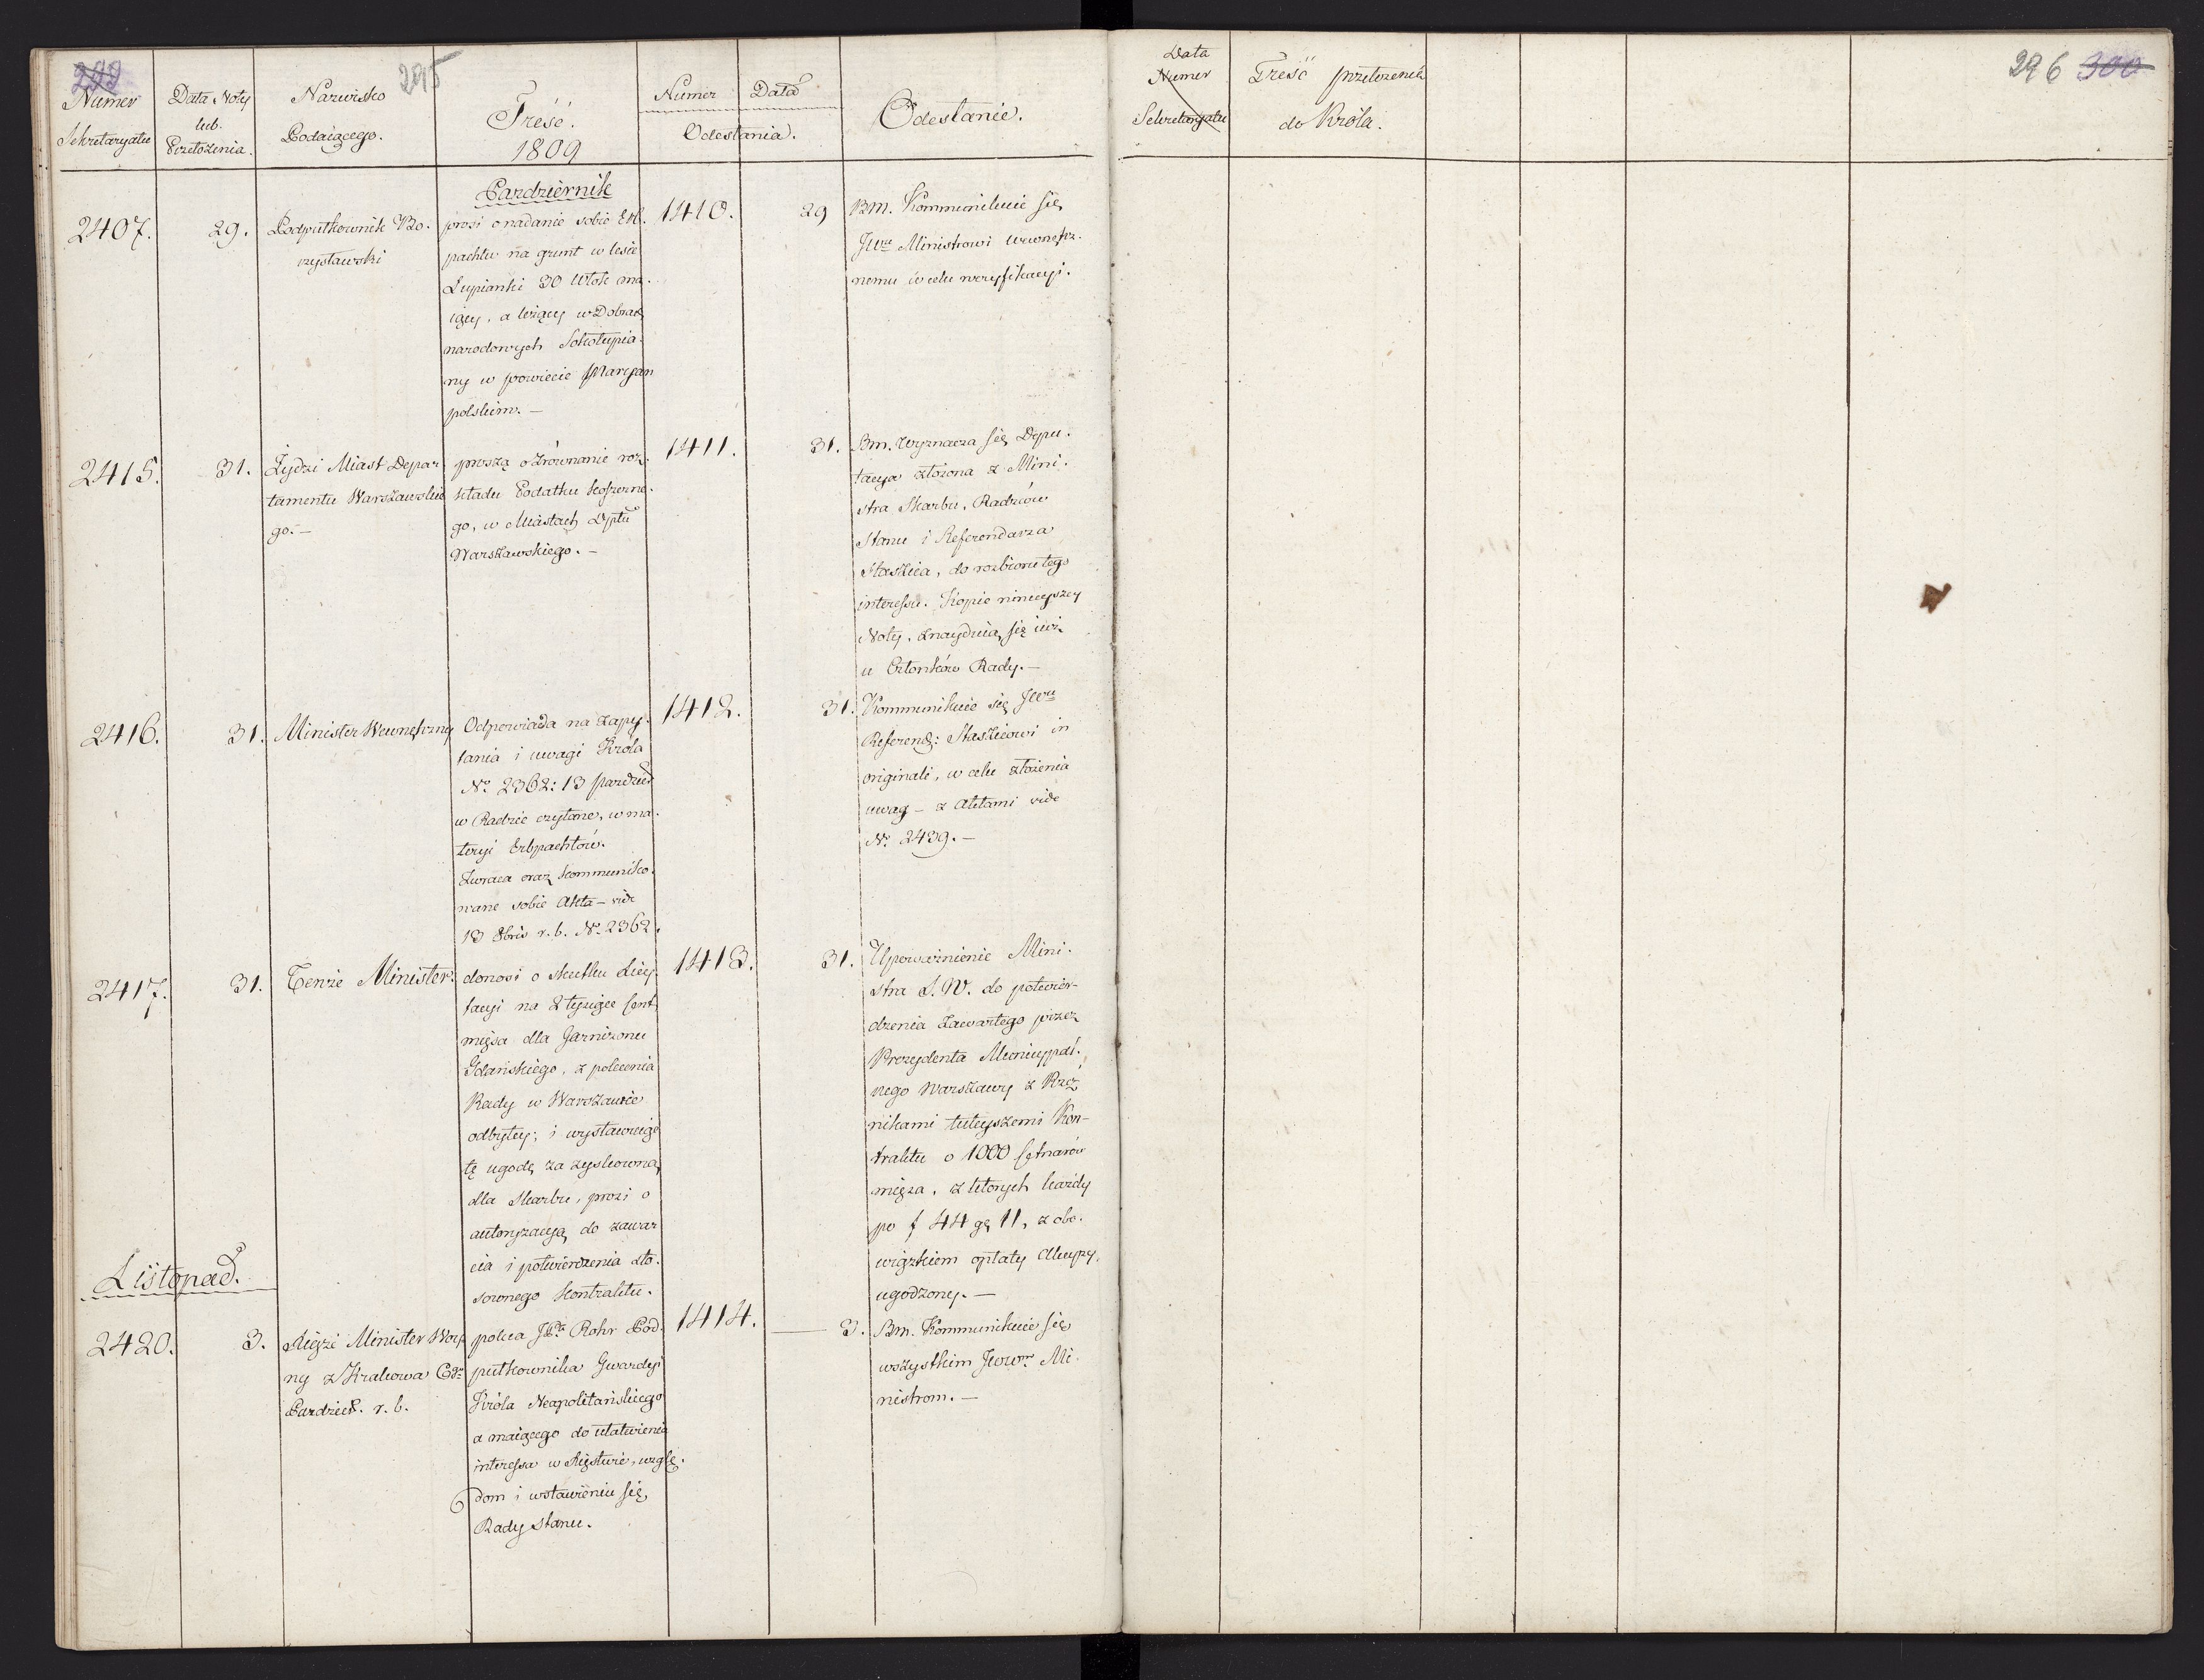 299
295
Numer
Sekretaryatu
Data Noty
lub
Przełożenia.
Nazwisko
Podaiącego.
Treść.
1809
Numer Data
Odesłania.
Odesłanie.
Pazdziernik
2407.
29.
Podpułkownik Bo-
rzysławski
prosi o nadanie sobie Erb.
pachtu na grunt w lesie
Łupianki 30 Włok ma-
iący, a leżący w Dobrach
narodowych Sokołupia-
ny w powiecie Maryan
polskim. —
1410.
29
Bm. Kommunikuie się
Ministrowi wewnętrz-
nemu w celu weryfikacyi.
2415.
31.
Żydzi Miast Depar-
tamentu Warszawskie
go. —
proszą o zrównanie roz-
kładu Podatku koszerne-
go, w Miastach Dptu
Warszawskiego. —
1411.
31.
Bm. Wyznacza się Depu-
tacya złożona z Mini-
stra Skarbu, Radzców
Stanu i Referendarza
Staszica, do rozbioru tego
interessu. Kopie ninieyszey
Noty, znayduią się iuż
u Członków Rady. —
2416.
31.
Minister Wewnętrzny
Odpowiada na zapy-
tania i uwagi Króla
No. 2362: 13 pazdzier
w Radzie czytane, w ma-
teryi Erbpachtów.
Zwraca oraz kommuniko-
wane sobie Akta — vide
13 8bris r. b. No. 2362.
1412.
31.
Kommunikuie się
Referend: Staszicowi in
originali, w celu złożenia
uwag — z Aktami vide
No. 2439. —
2417.
31.
Tenże Minister.
donosi o skutku Licy-
tacyi na 2 tysiące
mięsa dla Garnizonu
Gdańskiego, z polecenia
Rady w Warszawie
odbytey; i wystawuiąc
tę ugodę za zyskowną
dla Skarbu, prosi o
autoryzacyą do zawar
cia i potwierdzenia sto-
sownego kontraktu.
1413.
31.
Upoważnienie Mini-
stra S. W. do potwier-
dzenia zawartego przez
Prezydenta Municypal-
nego Warszawy z Rzeź
nikami tuteyszemi Kon-
traktu o 1000 Cetnarów
mięsa, z których każdy
po f 44 gr 11, z obo-
wiązkiem opłaty
ugodzony. —
Listopad.
2420.
3.
Xiążę Minister Woy
ny z Krakowa
Pazdzier. r. b.
poleca Rohr Pod-
pułkownika Gwardyi
Króla Neapolitańskiego
a maiącego do ułatwienia
interessa w Xięstwie, wzglę-
dom i wstawieniu się
Rady Stanu.
1414.
3.
Bm. Kommunikuie się
wszystkim Mi-
nistrom. —
Data
Numer
Sekretaryatu
Treść przełożenia
do Króla.
296 300